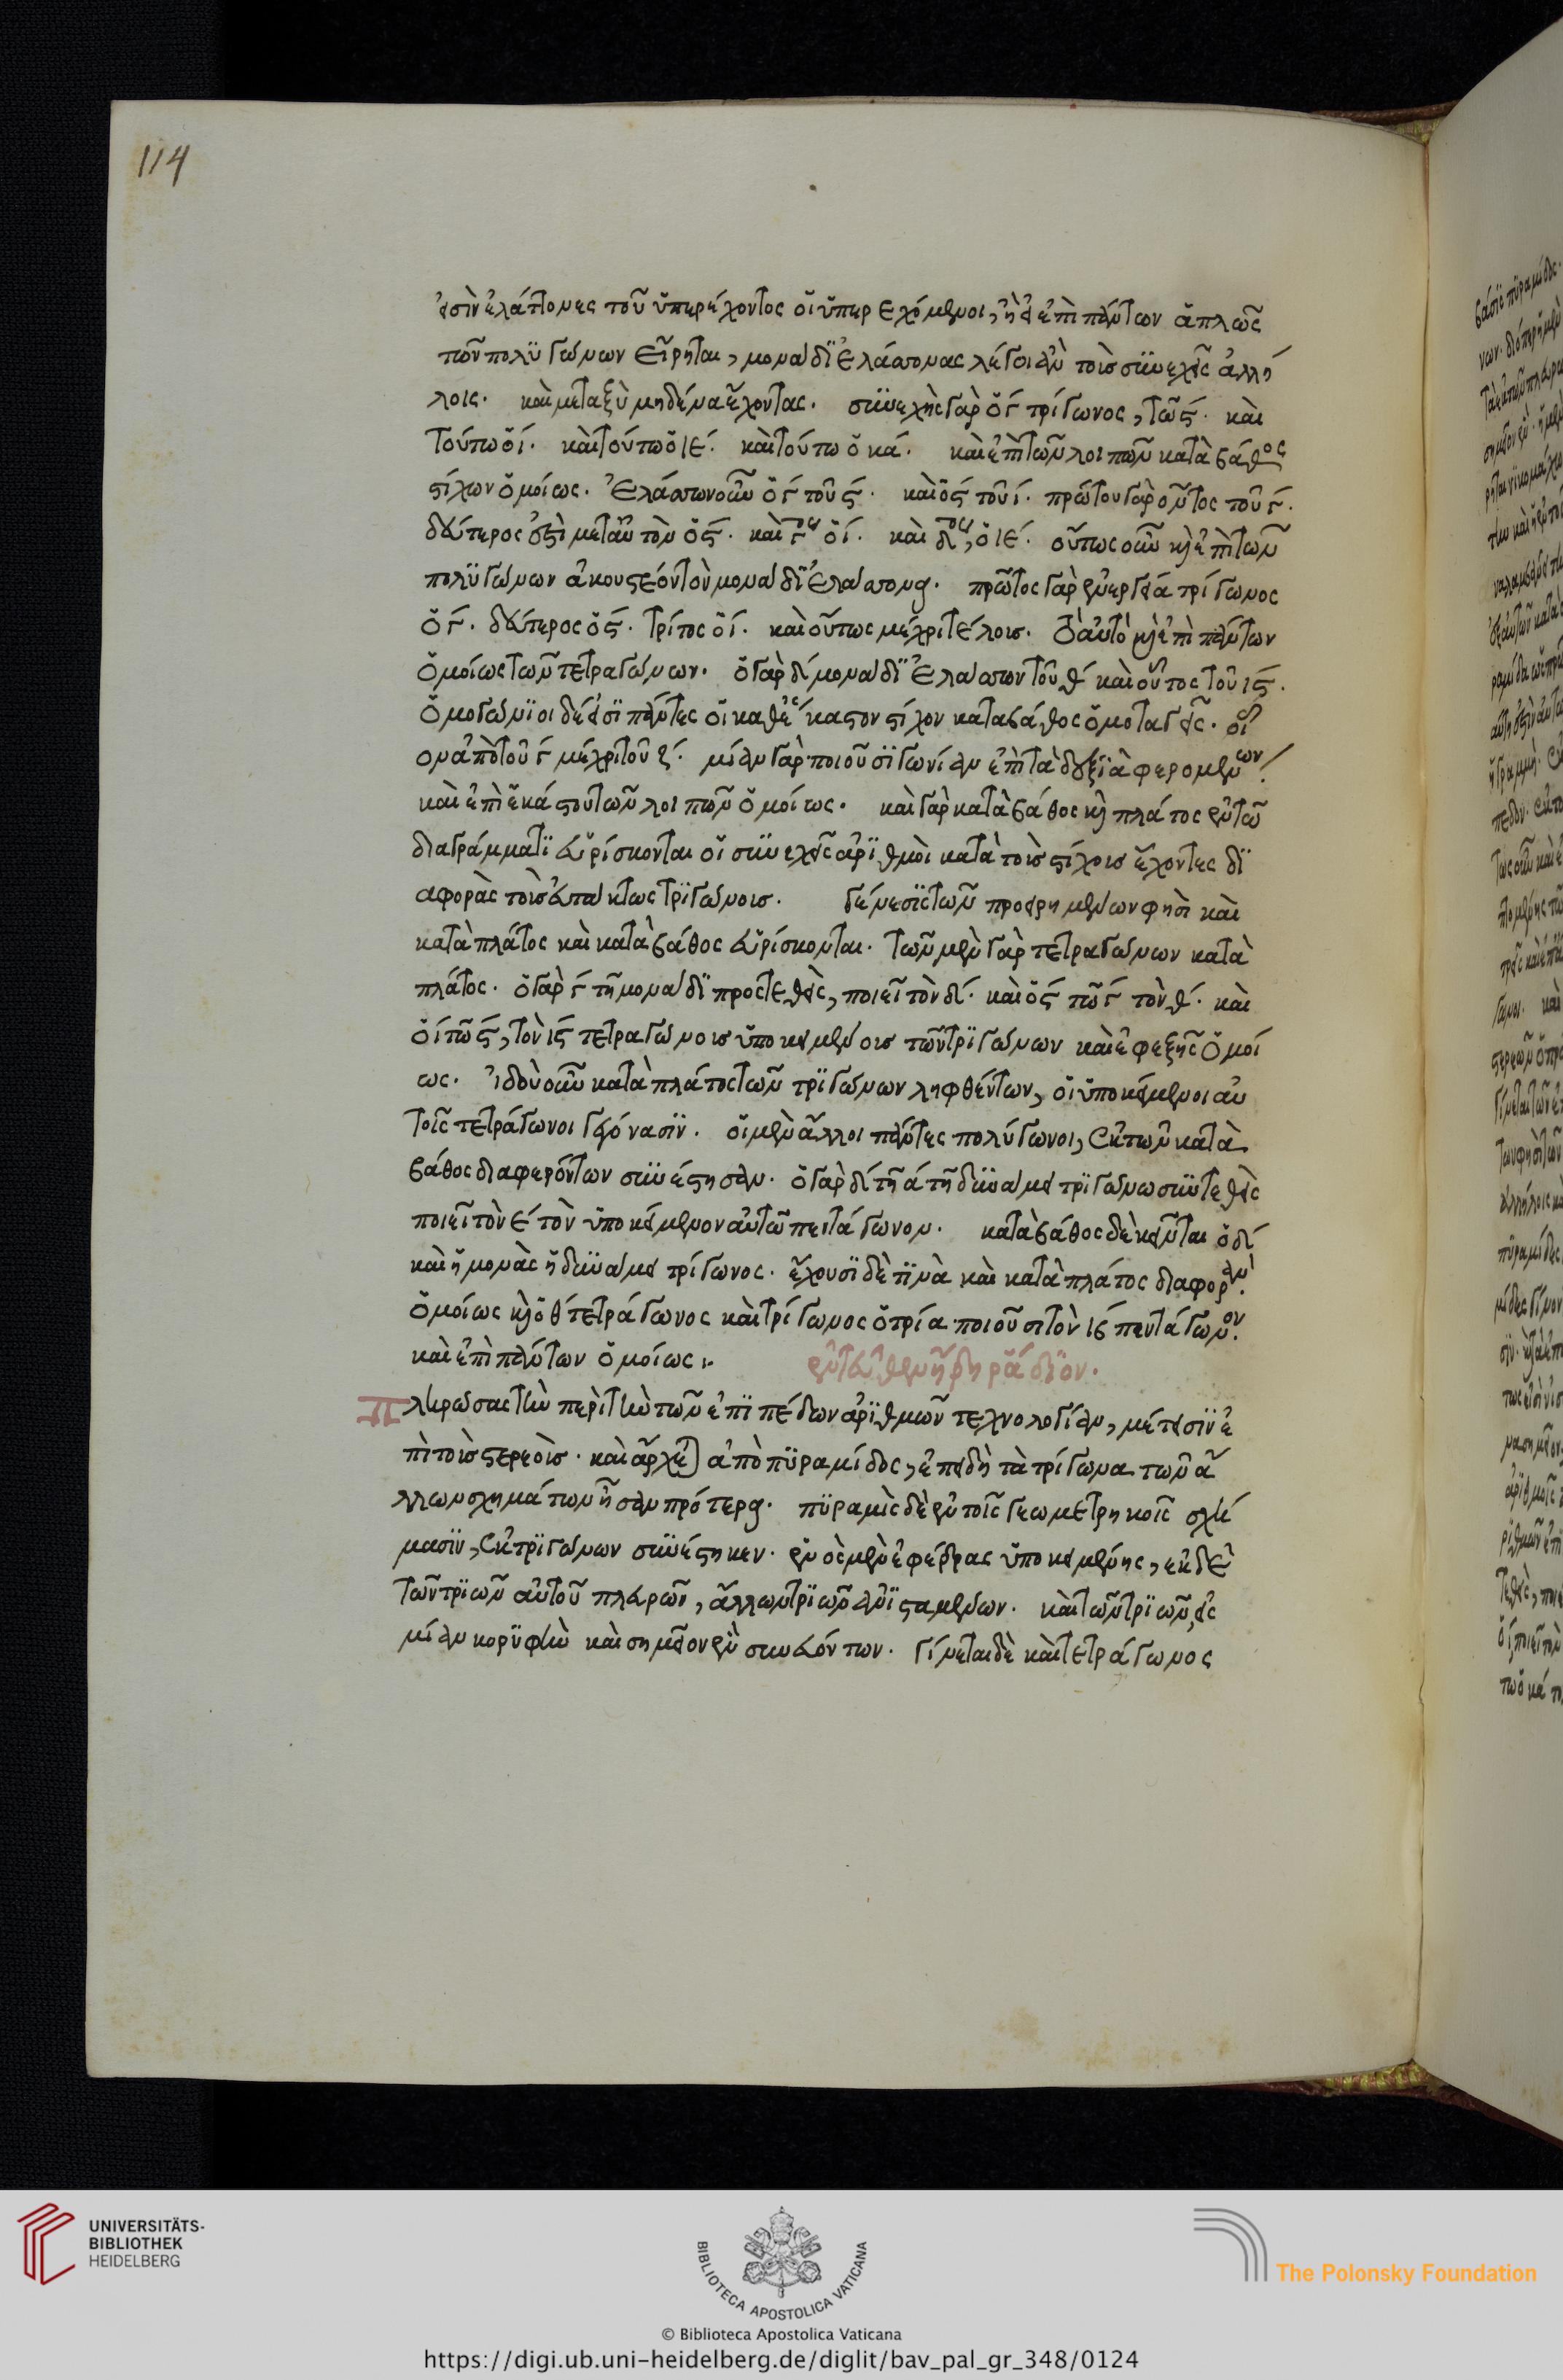 114
εἰσὶν ἐλάττονες τοῦ ὑπερέχοντος οἱ ὑπερεχόμενοι, ἢ εἰ ἐπὶ πάντων ἁπλῶς
τῶν πολυγώνων εἴρηται, μονάδι ἐλάττονας λέγει ἂν τοὺς συνεχεῖς ἀλλή
λοις. καὶ μεταξὺ μηδένα ἔχοντας. συνεχὴς γὰρ ὁ γ τρίγωνος, τῷ ς. καὶ
τούτῳ ὁ ι. καὶ τούτῳ ὁ ιε. καὶ τούτῳ ὁ κα. καὶ ἐπὶ τῶν λοιπῶν κατὰ βάθος
στίχων ὁμοίως. ἐλάττων οὖν ὁ γ τοῦ ς. καὶ ὁ ς τοῦ ι. πρώτου γὰρ ὄντος τοῦ γ.
δεύτερος ἐστὶ μετ' αὐτὸν ὁ ς. καὶ γος ὁ ι. καὶ δος, ὁ ιε. οὕτως οὖν κἀπὶ τῶν
πολυγώνων ἀκουστέον τὸν μονάδι ἐλάττονα. πρῶτος γὰρ ἐνεργείᾳ τρίγωνος
ὁ γ. δεύτερος ὁ ς. τρίτος ὁ ι. καὶ οὕτως μέχρι τέλους. τὸ αὐτὸ κἀπὶ πάντων
ὁμοίως τῶν τετραγώνων. ὁ γὰρ δ μονάδι ἐλάττων τοῦ θ καὶ οὗτος τοῦ ις.
ὁμογώνιοι δέ εἰσι πάντες οἱ καθ' ἕκαστον στίχον κατὰ βάθος ὁμοταγεῖς. οἷ
ον ἀπὸ τοῦ γ μέχρι τοῦ ζ. μίαν γὰρ ποιοῦσι γωνίαν ἐπὶ τὰ δεξιὰ φερομένων.
καὶ ἐπὶ ἑκάστου τῶν λοιπῶν ὁμοίως. καὶ γὰρ κατὰ βάθος καὶ πλάτος ἐν τῷ
διαγράμματι εὑρίσκονται οἱ συνεχεῖς ἀριθμοὶ κατὰ τοὺς στίχους ἔχοντες δι
αφορὰς τοὺς εὐτάκτως τριγώνους. γένεσις τῶν προειρημένων φησὶ καὶ
κατὰ πλάτος καὶ κατὰ βάθος εὑρίσκονται. τῶν μὲν γὰρ τετραγώνων κατὰ
πλάτος. ὁ γὰρ γ τῇ μονάδι προστεθεὶς, ποιεῖ τὸν δ. καὶ ὁ ς τῷ γ τὸν θ. καὶ
ὁ ι τῷ ς, τὸν ις τετραγώνους ὑποκειμένους τῶν τριγώνων καὶ ἐφεξῆς ὁμοί
ως. ἰδοὺ οὖν κατὰ πλάτος τῶν τριγώνων ληφθέντων, οἱ ὑποκείμενοι αὐ
τοῖς τετράγωνοι γεγόνασιν. οἱ μὲν ἄλλοι πάντες πολύγωνοι, ἐκ τῶν κατὰ
βάθος διαφερόντων συνέστησαν. ὁ γὰρ δ τῇ α τῇ δυνάμει τριγώνῳ συντεθεὶς
ποιεῖ τὸν ε τὸν ὑποκείμενον αὐτῷ πεντάγωνον. κατὰ βάθος δὲ κεῖνται ὁ δ
καὶ ἡ μονὰς ἡ δυνάμει τρίγωνος. ἔχουσι δὲ τινὰ καὶ κατὰ πλάτος διαφοράν.
ὁμοίως καὶ ὁ θ τετράγωνος καὶ τρίγωνος ὁ τρία ποιοῦσι τὸν ιβ πεντάγωνον.
καὶ ἐπὶ πάντων ὁμοίως:
πληρώσας τὴν περὶ τὴν τῶν ἐπιπέδων ἀριθμῶν τεχνολογίαν, μέτεισιν ἐ
πὶ τοὺς στερεούς. καὶ ἄρχεται ἀπὸ πυραμίδος, ἐπειδὴ τὰ τρίγωνα τῶν ἄ
λλων σχημάτων ἦσαν πρότερα. πυραμὶς δὲ ἐν τοῖς γεωμετρικοῖς σχή
μασιν, ἐκ τριγώνων συνέστηκεν. ἑνὸς μὲν ἐφέδρας ὑποκειμένης, ἐκ δὲ
τῶν τριῶν αὐτοῦ πλευρῶν, ἄλλων τριῶν ἀνισταμένων. καὶ τῶν τριῶν, εἰς
μίαν κορυφὴν καὶ σημεῖον ἓν συνιόντων. γίνεται δὲ καὶ τετράγωνος
UNIVERSITÄTS-
BIBLIOTHEK
HEIDELBERG
BIBLIOTECA APOSTOLICA VATICANA
© Biblioteca Apostolica Vaticana
The Polonsky Foundation
https://digi.ub.uni-heidelberg.de/diglit/bav_pal_gr_348/0124